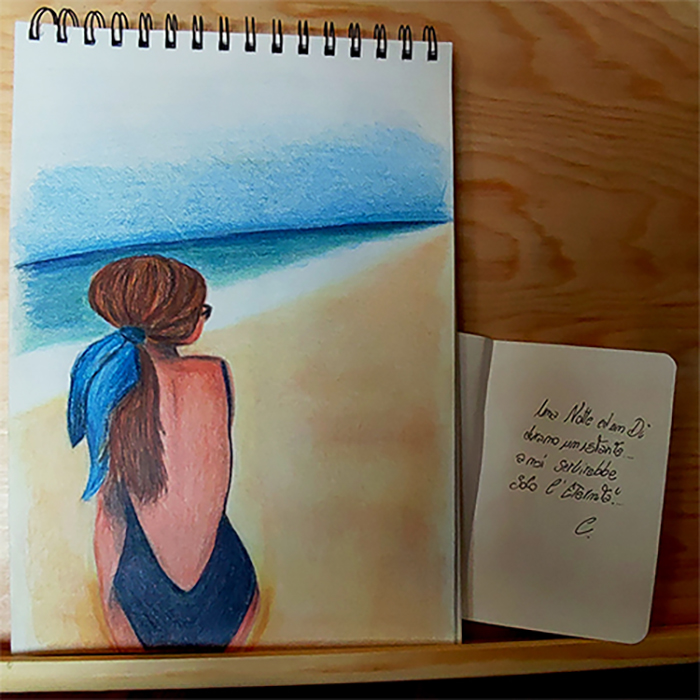 Una Notte ed un Dì
durano un istante...
a noi servirebbe
solo l'Eternità...
C.